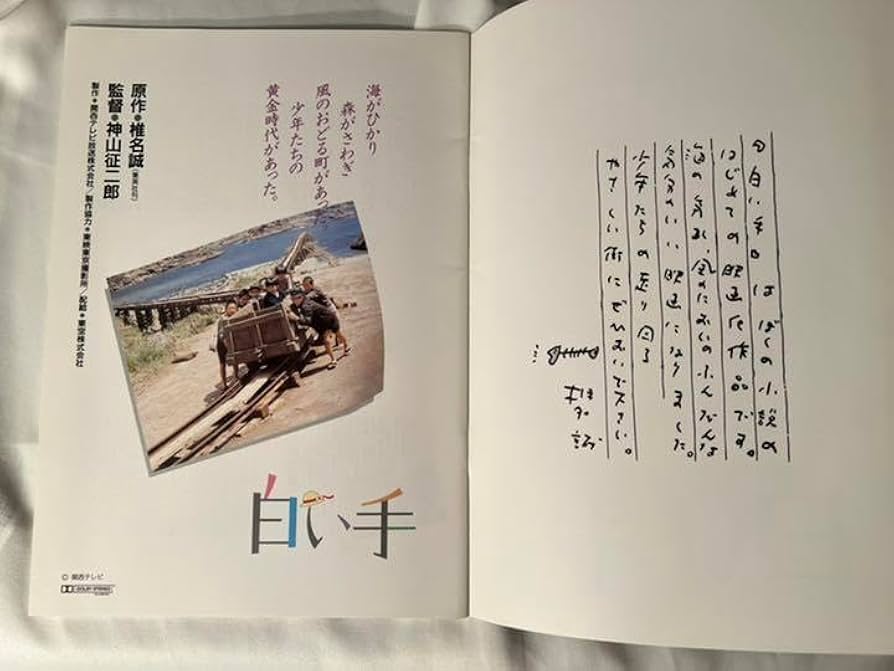 『白い手』はぼくの小説の
はじめての映画化作品です。
海の、風のにおいのふんだんな
気分のいい映画になりました。
少年たちの走り回る
やさしい街にぜひおいで下さい。
椎名誠
海がひかり
森がさわぎ
風のおどる町があった。
少年たちの
黄金時代があった。
原作●椎名誠（集英社刊）
監督●神山征二郎
製作●関西テレビ放送株式会社／製作協力●東映東京撮影所／配給●東宝株式会社
白い手
© 関西テレビ
DOLBY STEREO